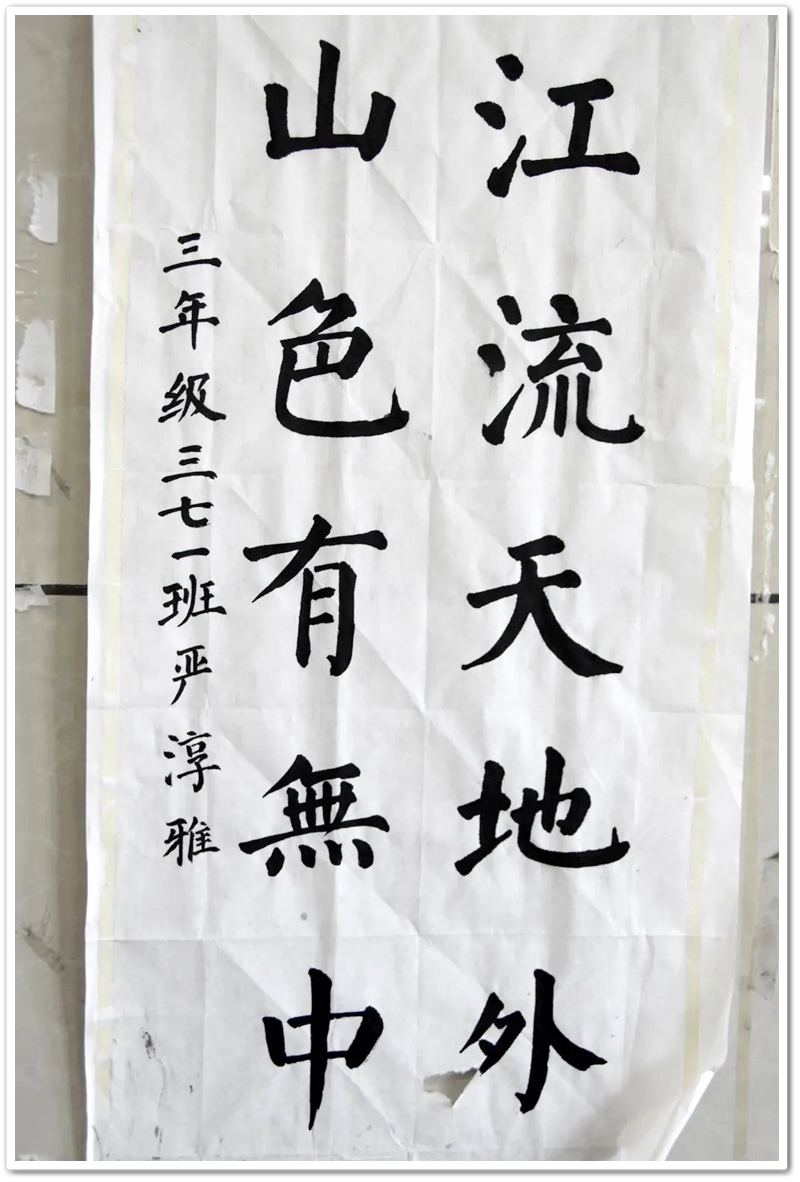 江流天地外
山色有無中
三年级三七一班严淳雅